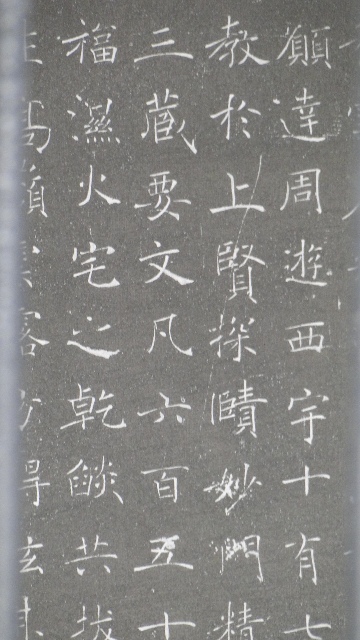 願達周遊西宇十有七
教於上賢探賾妙門精
三藏要文凡六百五十
福濕火宅之乾燄共拔
高嶺露方得泫